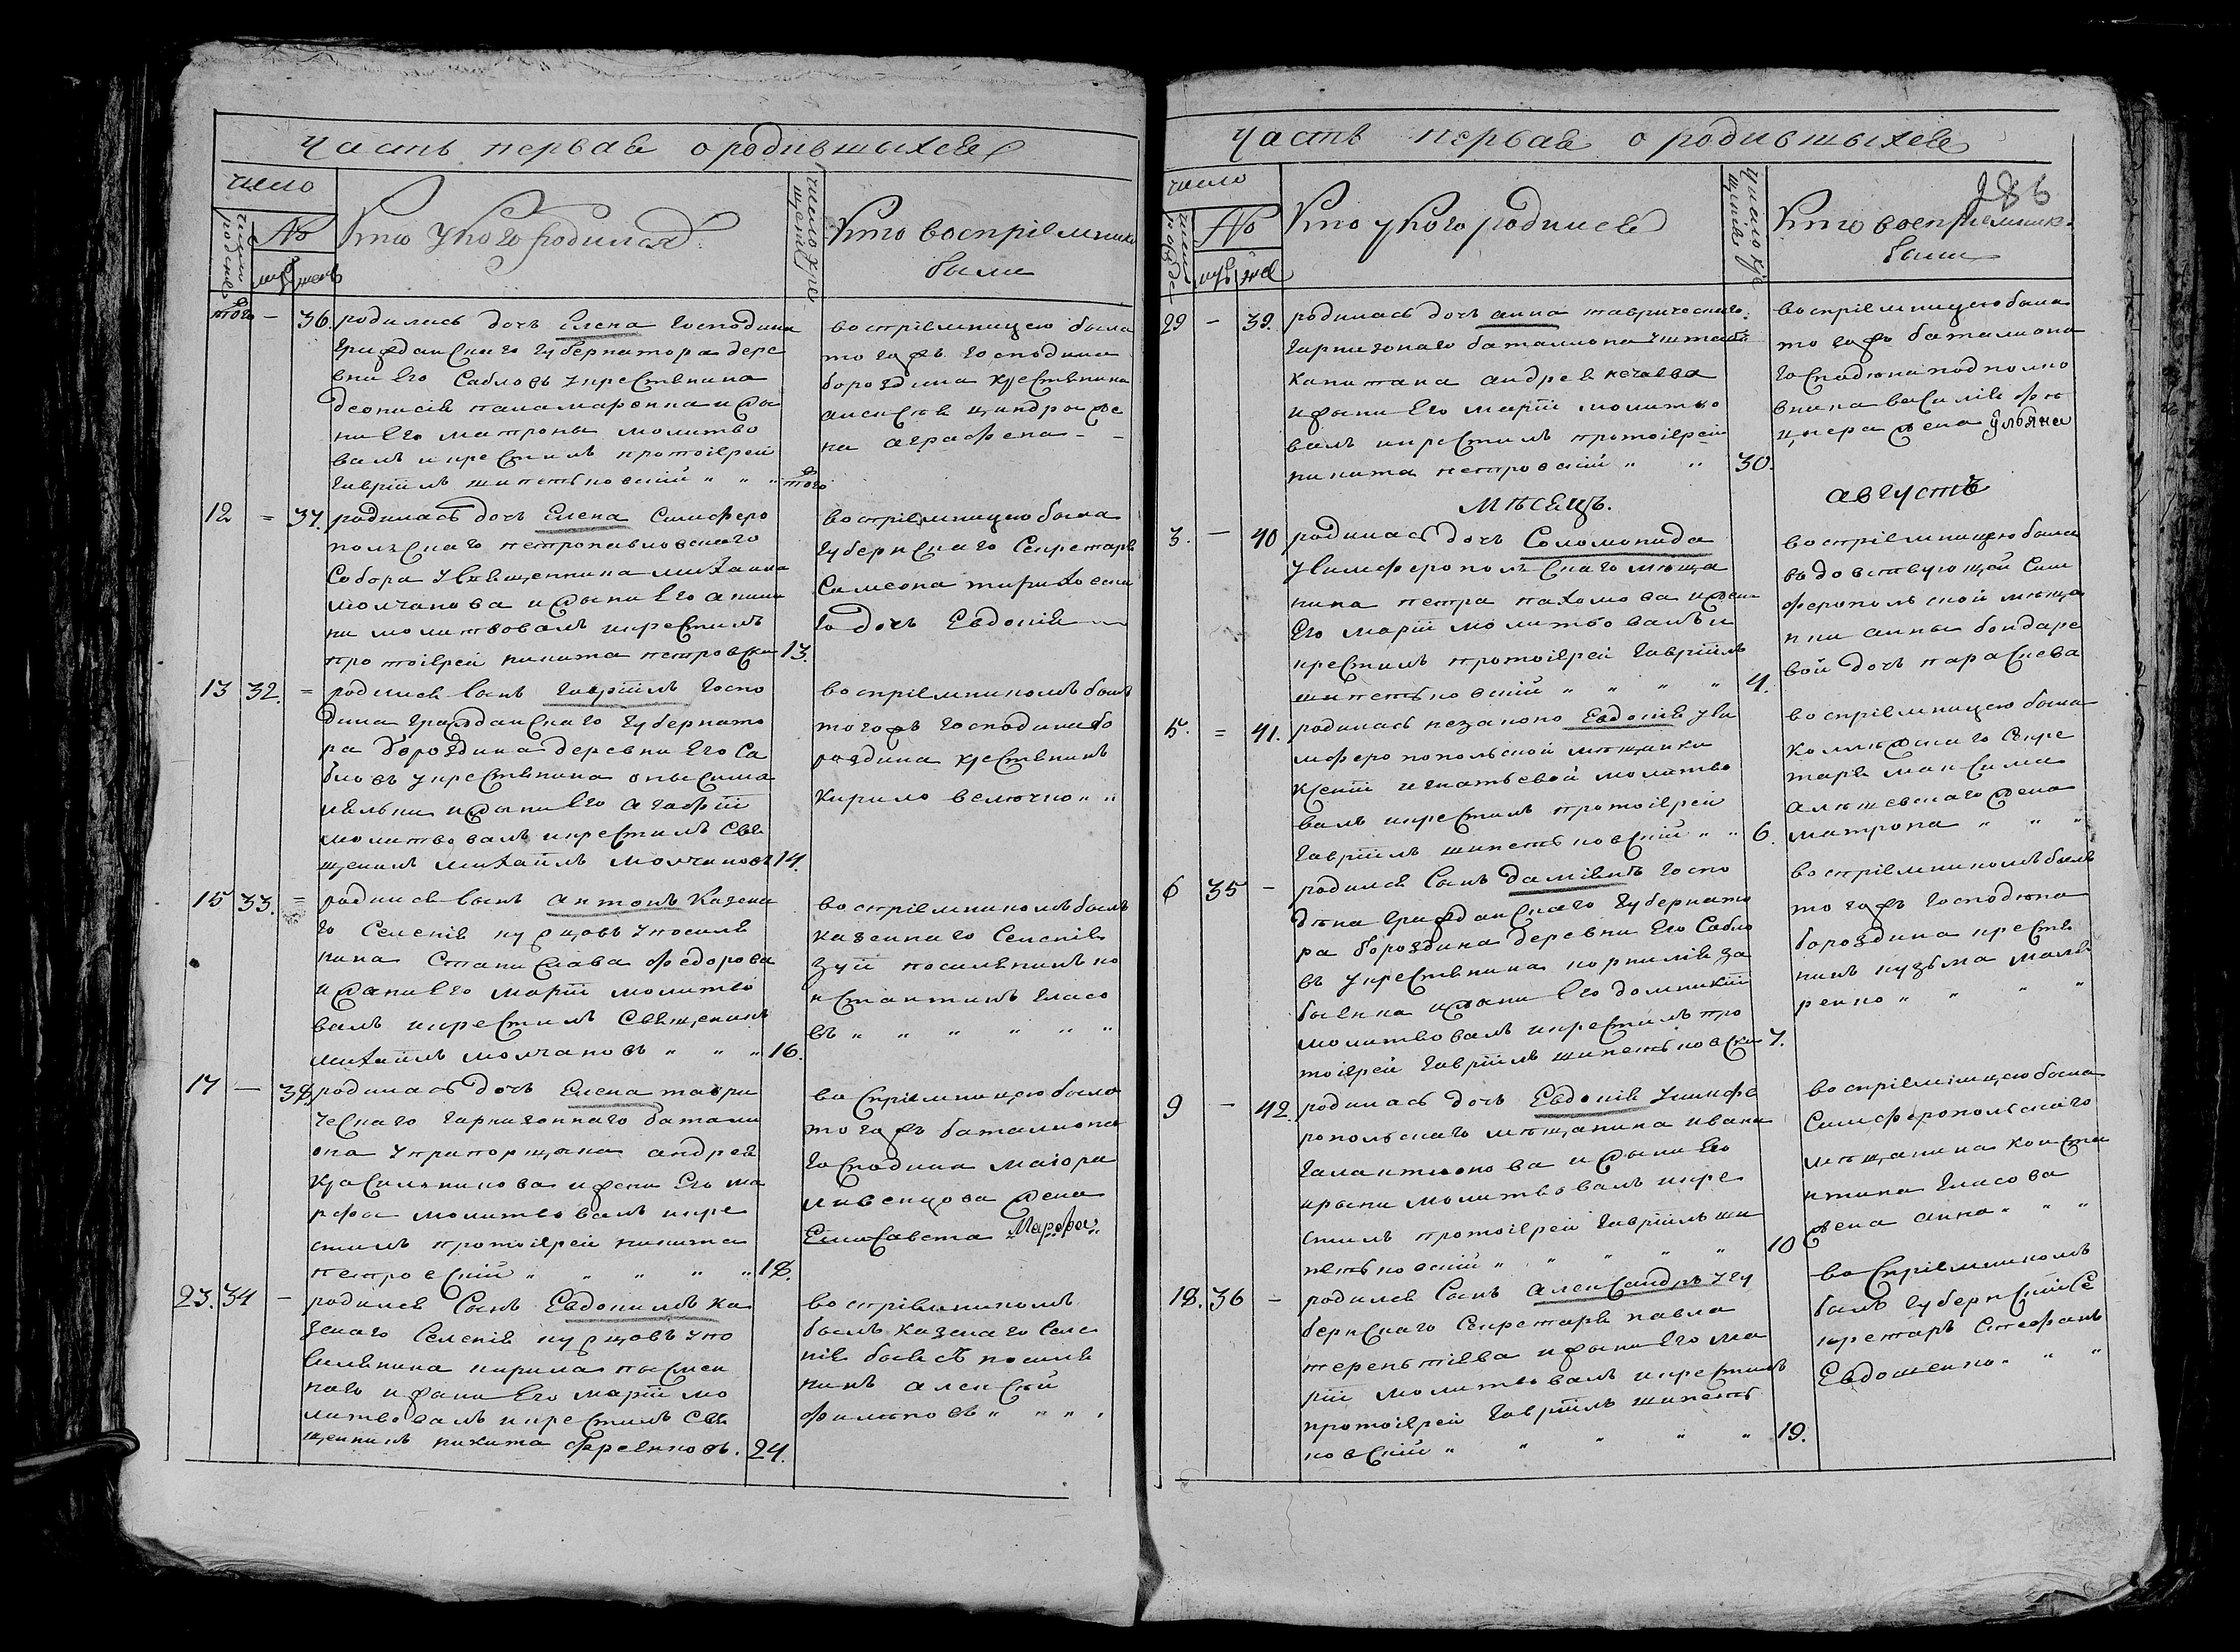 Часть первая о родившыхся
число
число рождения
№
муж
женс
Кто у кого родился
число крещения
Кто восприемники
были
того
–
36.
родилась дочь Елена господина
гражданскаго губернатора дере
вни его Сабловъ укрестянина
деонисія паламаренка и жы
ни его матроны молитво
валъ и крестилъ протоіерей
гавріилъ шипетьковскій " " "
того
воспріемницею была
тогожъ господина
бороздина крестянина
алексея жe
на аграфена - -
12
=
37.
родилась дочь Елена симферо
польскаго петропавловскаго
Собора усвященника михаила
молчанова и жыны его анны
ни молитвовалъ и крестилъ
протоіерей никита петровски
13.
воспріемницею была
губернскаго Секретаря
Симеона
го дочь Евдокія
13
32.
=
родился Сынъ гавріилъ госпо
дина гражданскаго губернато
ра бороздина деревни его Са
бловъ укрестянина
и жыни его агафіи
молитвовалъ и крестилъ Свя
щеникъ михаилъ молчановъ
14.
воспріемникомъ былъ
тогожъ господина бо
роздина крестянинъ
кирило величко " "
15
33.
=
родился Сынъ антонъ казена
го Селенія курцовъ упоселя
нина Станислава федорова
и жани его маріи молитво
валъ и крестилъ Священикъ
михаилъ молчановъ " " "
16.
воспріемникомъ былъ
казеннаго Селенія
зуи поселянинъ ко
нстантинъ власо
въ " " " " " "
17
–
38.
родилась дочь Елена таври
ческаго гарнизоннаго батали
она упрапорщика андрея
красильникова и жени его ма
рфа молитвовалъ и кре
стилъ протоіерей никита
петровскій " " " " "
18.
воспріемницею была
тогожъ баталиона
господина маіора
ливенцова жена
Елисавета Марфа
23.
34
–
родился Сынъ Евдокимъ ка
зенаго Селенія курцовъ упо
селянина кирила
наго и жани его маріи мо
литвовалъ и крестилъ Свя
щенникъ никита
24.
воспріемникомъ
былъ казенаго Селе
нія біясъ поселя
нинъ алексей
филиповъ " " " "
Часть первая о родившыхся
286
число
число рожде
№
муж
же
Кто у кого родился
число кре
щения
Кто восприемник
были
29
–
39.
родилась дочь анна таврическаго
гарнизонаго баталиона уштабс
капитана андрея нечаева
и жыни его маріи молитво
валъ и крестилъ протоіерей
никита петровскій " "
30.
воспріемницею была
тогожъ баталиона
господина подполко
вника василія
жена ульяна
мѣсецъ.
августъ
3.
–
40
родилась дочь Соломонида
усимферопольскаго меща
нина петра пахомова и жени
его маріи молитвовалъ и
крестилъ протоіерей гавріилъ
шипетьковскій " " " "
4.
воспріемницею была
вдовствующой Сим
феропольской меща
нки анны бондаре
вой дочь параскева
5.
=
41.
родилась незаконо Евдокія уси
мферопопольской мещанки
ксеніи игнатьевой молитво
валъ и крестилъ протоіерей
гавріилъ шипетьковскій " "
6.
воспріемницею была
колежскаго Секре
таря максима
жена
матрона " " "
6
35
–
родился Сынъ даміянъ госпо
дина гражданскаго губернато
ра бороздина деревни его Сабло
въ укрестянина корнилія за
и жани его домникіи
молитвовалъ и крестилъ про
тоіерей гавріилъ шипетьковски
7.
воспріемникомъ былъ
тогожъ господина
бороздина крестя
нинъ кузьма маля
ренко " " " "
9
–
42.
родилась дочь Евдокія усимфе
ропольскаго мещанина ивана
галактионова и жыни его
ирыни молитвовалъ и кре
стилъ протоіерей гавріилъ ши
петьковскій " " " " "
10
воспріемницею была
Симферопольскаго
мещанина конста
нтина власова
жена анна " " "
18.
36
–
родился Сынъ александръ угу
бернскаго Секретаря павла
терентіева и жыни его ма
ріи молитвовалъ и крестилъ
протоіерей гавріилъ шипеть
ковскій " " " " "
19.
воспріемникомъ
былъ губернскій Се
кретарь Стефанъ
Евдошенко " "